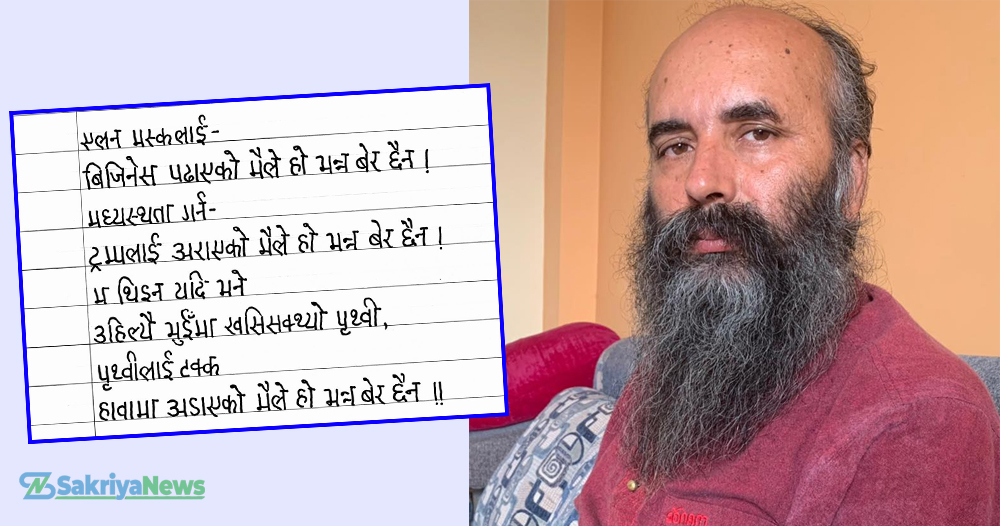 एलन मस्कलाई-
बिजिनेस पढाएको मैले हो भन्न बेर छैन !
मध्यस्थता गर्न-
ट्रम्पलाई अराएको मैले हो भन्न बेर छैन !
म थिइन यदि भने
उहिल्यै भुईँमा खसिसक्थ्यो पृथ्वी,
पृथ्वीलाई टक्क
हावामा अडाएको मैले हो भन्न बेर छैन !!
SakriyaNews